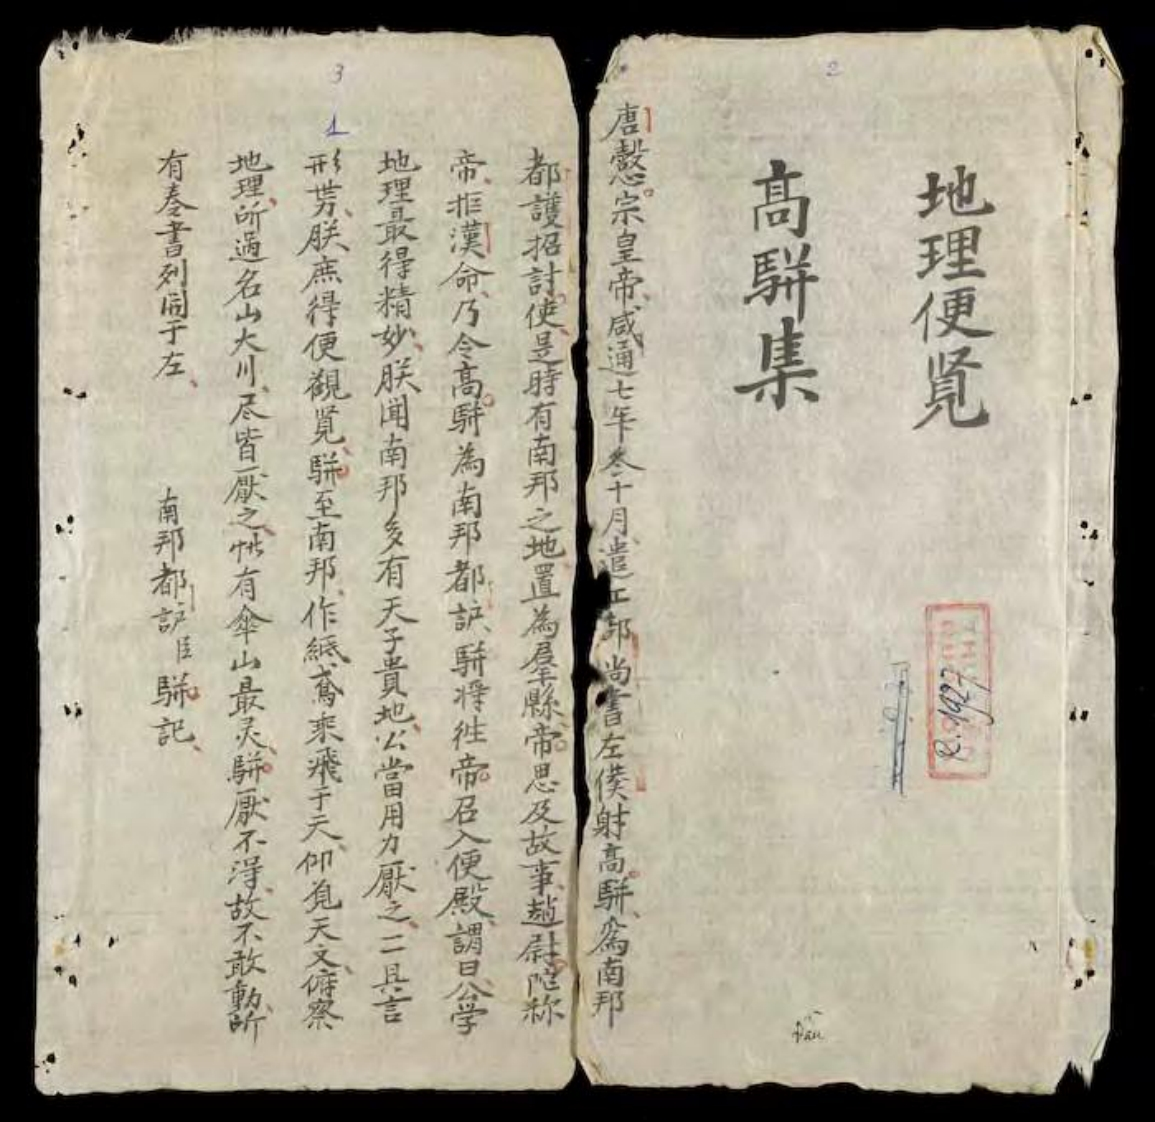 2
地理便覧
高駢集
R.1927
唐懿宗皇帝咸通七年冬十月遣工部尚書左僕射高駢為南邦
3
1
都護招討使是時有南邦之地置為羣縣帝思及故事趙尉陀称
帝拒漢命乃令高駢為南邦都护駢将徃帝召入便殿謂曰公学
地理最得精妙朕聞南邦多有天子貴地公當用力厭之一一具言
形势朕庶得便觀覧駢至南邦作紙鳶乘飛于天仰覍天文俯察
地理所過名山大川尽皆厭之惟有傘山最灵駢厭不淂故不敢動所
有奏書列開于左
南邦都护臣駢記